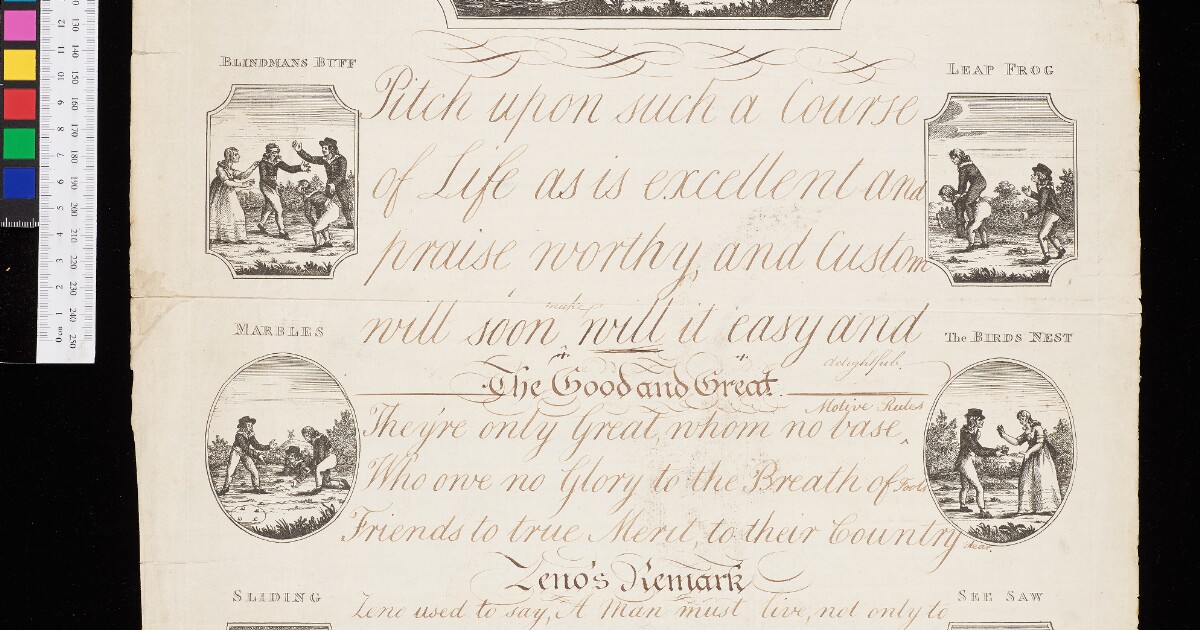 BLINDMANS BUFF
LEAP FROG
Pitch upon such a Course
of Life as is excellent and
praise worthy, and Custom
make
will soon will it easy and
delightful.
MARBLES
The BIRDS NEST
The Good and Great.
Motive Rules
They're only Great, whom no base
Who owe no Glory to the Breath of Fools
Friends to true Merit, to their Country
dear.
Zeno's Remark
SLIDING
SEE SAW
Zeno used to say, A Man must live, not only to